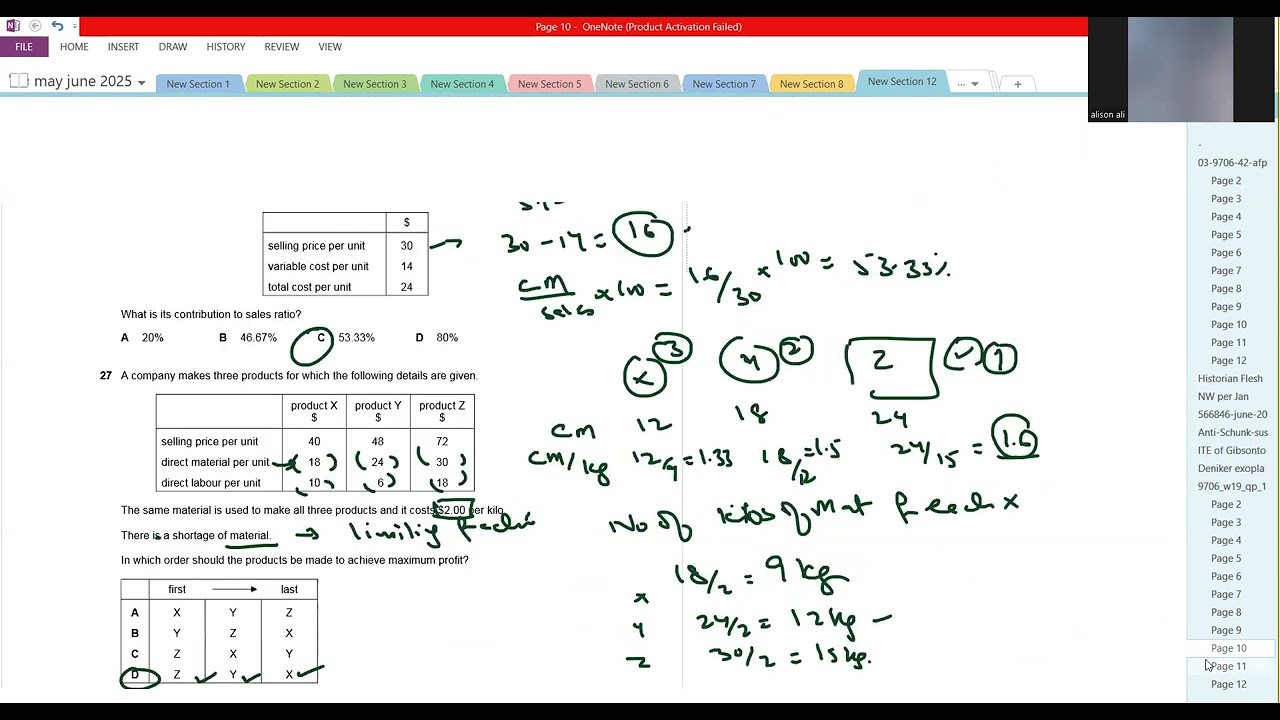 Page 10 - OneNote (Product Activation Failed)
FILE HOME INSERT DRAW HISTORY REVIEW VIEW
may june 2025 New Section 1 New Section 2 New Section 3 New Section 4 New Section 5 New Section 6 New Section 7 New Section 8 New Section 9 New Section 12 ... +
alison ali
03-9706-42-afp
Page 2
Page 3
Page 4
Page 5
Page 6
Page 7
Page 8
Page 9
Page 10
Page 11
Page 12
Historian Flesh
NW per Jan
566846-june-20
Anti-Schunk-sus
ITE of Gibsonto
Deniker exopla
9706_w19_qp_1
Page 2
Page 3
Page 4
Page 5
Page 6
Page 7
Page 8
Page 9
Page 10
Page 11
Page 12
$
selling price per unit 30
variable cost per unit 14
total cost per unit 24
30 - 14 = 16
CM/sales × 100 = 16/30 × 100 = 53.33%
What is its contribution to sales ratio?
A 20% B 46.67% C 53.33% D 80%
27 A company makes three products for which the following details are given.
product X $ product Y $ product Z $
selling price per unit 40 48 72
direct material per unit 18 24 30
direct labour per unit 10 6 18
The same material is used to make all three products and it costs $2.00 per kilo.
There is a shortage of material.
In which order should the products be made to achieve maximum profit?
first last
A X Y Z
B Y Z X
C Z X Y
D Z Y X
x 3 y 2 Z 1
CM 12 18 24
CM/kg 12/9 = 1.33 18/12 = 1.5 24/15 = 1.6
No of kilos of mat for each x
x 18/2 = 9 kg
y 24/2 = 12 kg
Z 30/2 = 15 kg.